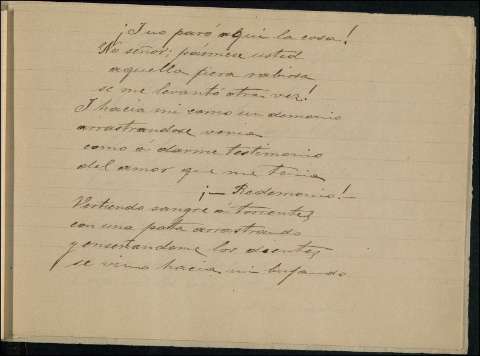 ¡I no paró aquí la cosa!
No señor; pármese usted
aquella pera rabiosa
se me levantó otra vez!
I hacia mi como un demonio
arrastrandose venia
como á darme testimonio
del amor que me tenia
¡— Redemonio! —
Vertiendo sangre á torrentes
con una pata arrastrando
y enseñandome los dientes
se vino hacia mi bufando